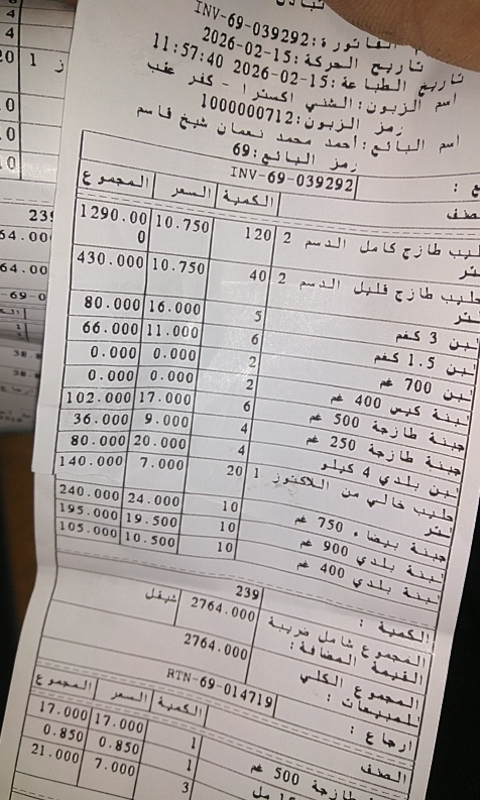 الفاتورة:INV-69-039292
تاريخ الحركة:15-02-2026
تاريخ الطباعة:15-02-2026 11:57:40
اسم الزبون:الشني اكسترا - كفر عقب
رمز الزبون:1000000712
اسم البائع:أحمد محمد نعمان شيخ قاسم
رمز البائع:69
INV-69-039292
الصنف الكمية السعر المجموع
حليب طازج كامل الدسم 2 لتر 120 10.750 1290.000
حليب طازج قليل الدسم 2 لتر 40 10.750 430.000
لبن 3 كغم 5 16.000 80.000
لبن 1.5 كغم 6 11.000 66.000
لبن 700 غم 2 0.000 0.000
لبنة كيس 400 غم 2 0.000 0.000
جبنة طازجة 500 غم 6 17.000 102.000
جبنة طازجة 250 غم 4 9.000 36.000
لبن بلدي 4 كيلو 4 20.000 80.000
حليب خالي من اللاكتوز 1 لتر 20 7.000 140.000
جبنة بيضاء 750 غم 10 24.000 240.000
لبنة بلدي 900 غم 10 19.500 195.000
لبنة بلدي 400 غم 10 10.500 105.000
الكمية : 239
المجموع شامل ضريبة القيمة المضافة: 2764.000 شيقل
المجموع الكلي للمبيعات : 2764.000
ارجاع : RTN-69-014719
الصنف الكمية السعر المجموع
طازجة 500 غم 1 17.000 17.000
1 0.850 0.850
مل 3 7.000 21.000